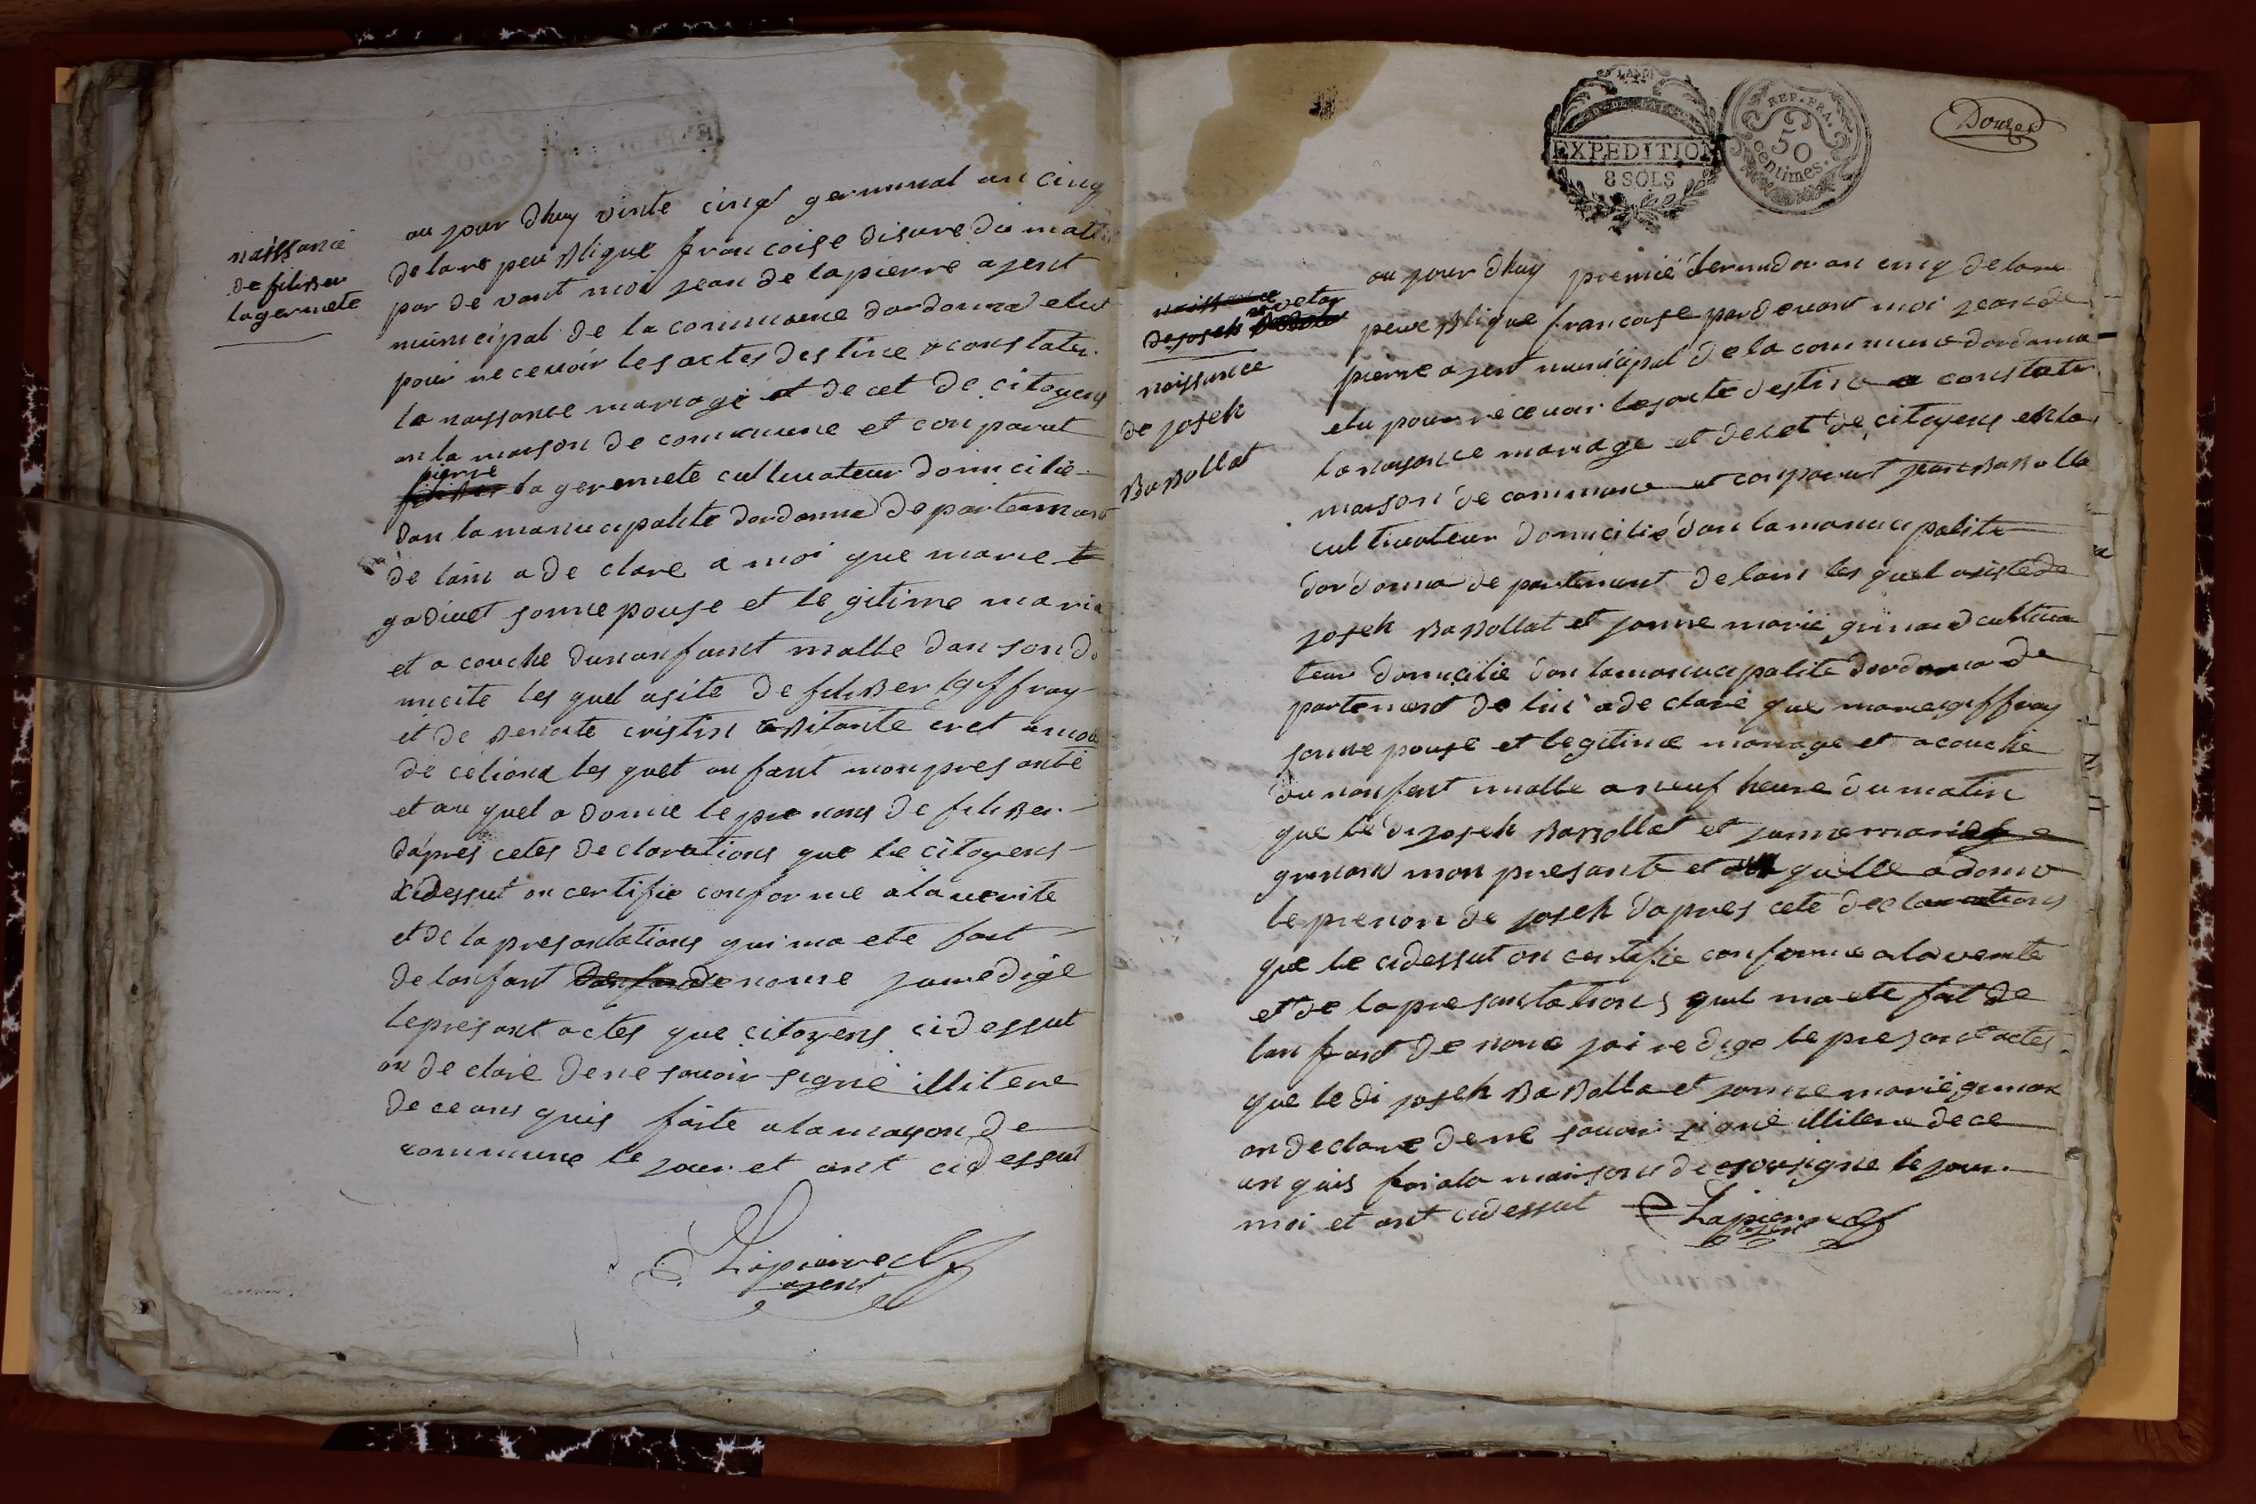 naissance
de filiber
lagermete
au jour dhuy vinte cinq germinal an cinq
de lare peu blique francoise disure du mati
par de vant moi jean de lapierre ajent
municipal de la commune dordonna elut
pour re cevoir les actes destine a constater
la naissance mariage et de cet de citoyens
an la maison de commune et comparut
pierre
filiber la geremete cultivateur domicilie
dan la manucipalite dordonna departemant
de lain a de clare a moi que marie
gadivet sonne pouse et le gitime maria
et a couche dunanfant malle dan son do
micile les quel asite de filiber geffray
et de benoite cristin abitante
de celiona les quel anfant mon presante
et au quel a donne le pre noms de filiber
dapres cetes de clarations que le citoyens
cidessut on certifie conforme a la verite
et de la presantations qui ma ete fait
de lanfant denome jairedige
lepresant actes que citoyens cidessut
on de clare dene savoir signe illitere
de ce ans quis faite a la mayson de
commune le jour et ant cidessut
Lapierre
ajent
EXPEDITION
8 SOLS
REP. FRA.
50
centimes.
Douze
naissance
de josek
naissance
de josek
Babollat
au jour dhuy premie termidor an cinq de lare
peue blique francoise pardevant moi jean de
pierre ajent municipal de la commune dordonna
elu pour recevoir lesacte destine a constater
la naysance mariage et decet de citoyens enla
maison de commune et comparut jean Babolla
cultivateur domicilie dan lamanucipalite
dordonna de partement de lain les quel asiste de
josek Babollat et janne marie grinand cultiva
teur domicilie dan lamanucipalite dordonna de
partemant de lin a de clare que marie geffray
sonne pouse et legitime mariage et a couche
du nanfant malle a neuf heure du matin
que le di josek Babollat et jannemarie
grinand mon presante et qu'elle a donne
le prenon de josek dapres cete declarations
que le cidessut on certifie conforme alaverite
et de la pre santations quil ma ete fait de
lan fant de nome jai re dige le presant actes
que le di josek Babolla et janne marie grinan
on declare dene savoir signe illitere dece
an quis fai ala maisons de le jour
moi et ant cidessut Lapierre
ajent